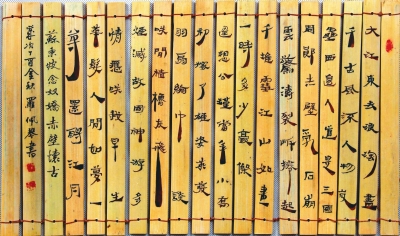 大江東去浪淘盡
千古風流人物故
壘西邊人道是三國
周郎赤壁亂石崩
雲驚濤裂岸捲起
千堆雪江山如畫
一時多少豪傑
遙想公瑾當年小喬
初嫁了雄姿英發
羽扇綸巾談
笑間檣櫓灰飛
煙滅故國神遊多
情應笑我早生
華髮人間如夢一
尊還酹江月
蘇東坡念奴嬌赤壁懷古
歲次丁酉金秋羅佩書